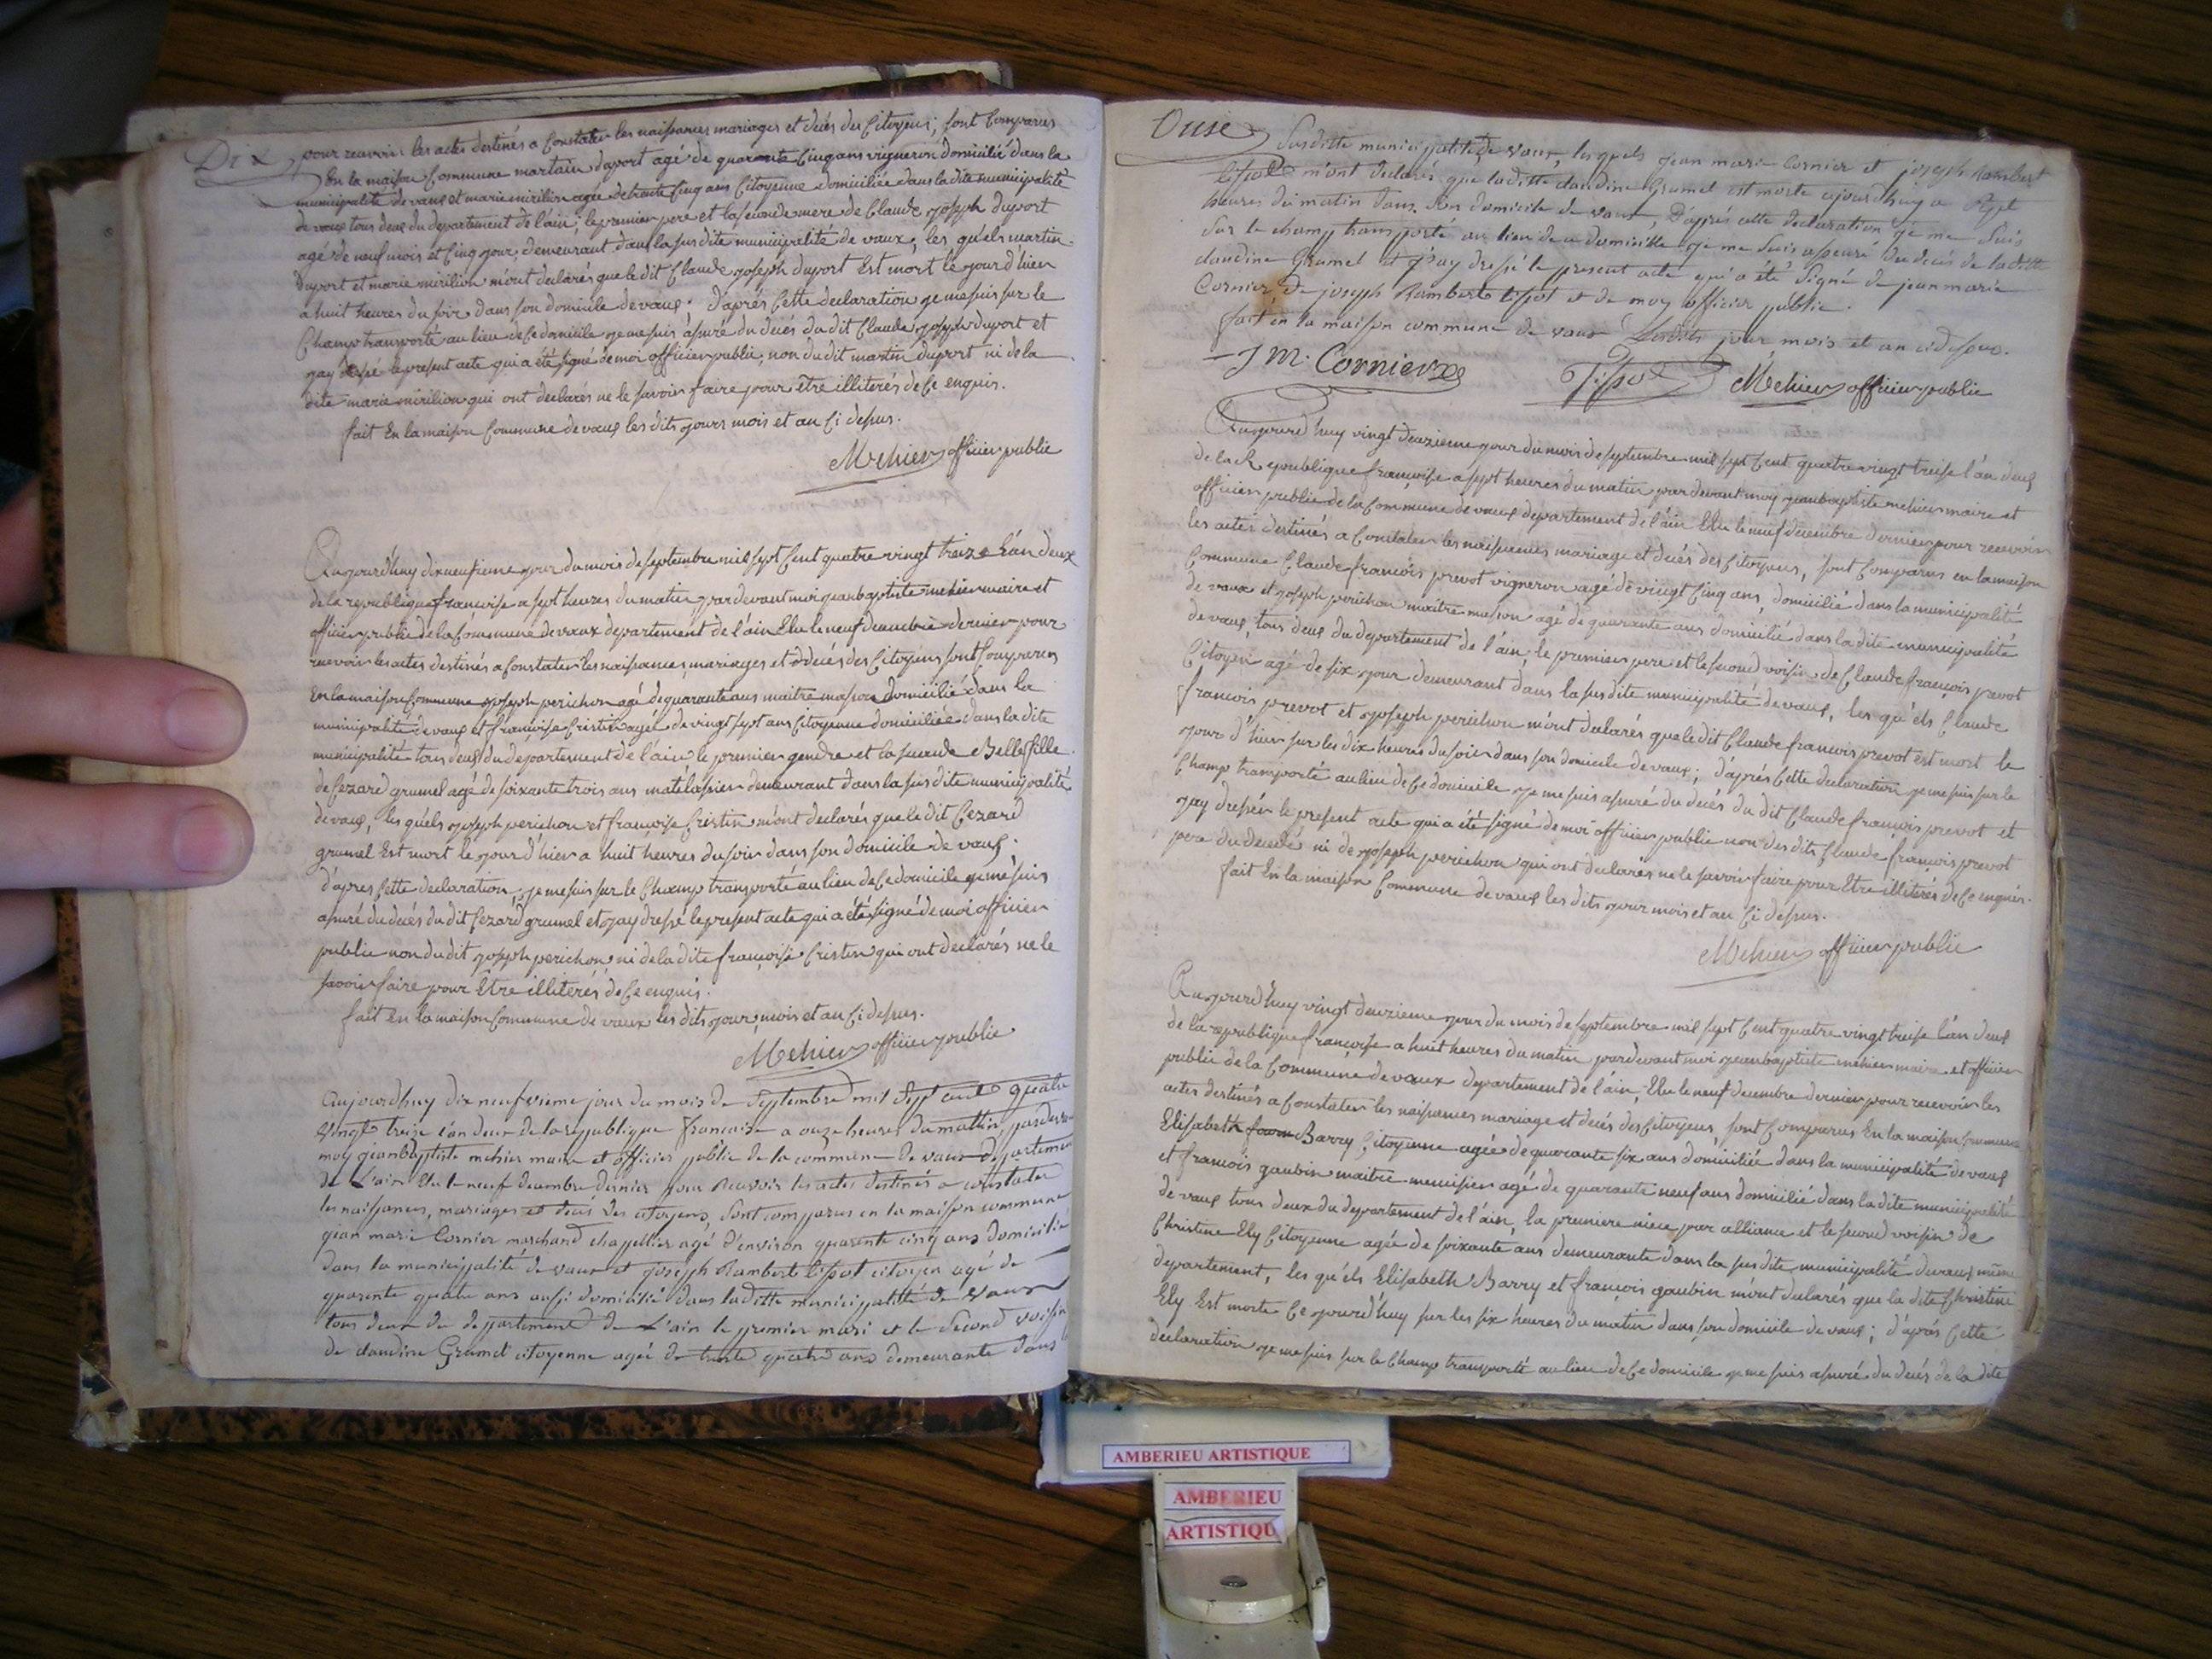 Dix
pour recevoir les actes destinés a Constater les naissances mariages et decés des Citoyens, sont Comparus
En la maison Commune martain duport agé de quarante Cinq ans vigneron domicilié dans la
municipalité de vaux et marie mirilion agée de trente Cinq ans Citoyenne domiciliée dans la dite municipalité
de vaux tous deux du departement de l'ain; le premier pere et la seconde mere de Claude joseph duport
agé de neuf mois et Cinq jour, demeurant dans la susdite municipalité de vaux; les qu'els martin
duport et marie mirilion m'ont declarés que le dit Claude joseph duport Est mort le jour d'hier
a huit heures du soir dans son domicile de vaux. d'aprés Cette declaration je me suis sur le
Champ transporté au lieu de Ce domicile je me suis assuré du decés du dit Claude joseph duport et
jay dressé le present acte qui a été signé de moi officier public, non du dit martin duport ni de la
dite marie mirilion qui ont declarés ne le savoir faire pour être illiterés de Ce enquis.
fait En la maison Commune de vaux les dits jours mois et an Ci dessus.
Mehier officier public
Aujourd'huy dixneufieme jour du mois de septembre mil sept Cent quatre vingt treize l'an deux
de la republique francoise a sept heures du matin pardevant moi jeanbaptiste mehier maire et
officier public de la Commune de vaux departement de l'ain Elu le neuf decembre dernier pour
recevoir les actes destinés a Constater les naissances, mariages et decés des Citoyens sont Comparus
En la maison Commune joseph perichon agé de quarante ans maitre masson domicilié dans la
municipalité de vaux et françoise Cristin agée de vingt sept ans Citoyenne domiciliée dans la dite
municipalité tous deux du departement de l'ain le premier gendre et la seconde Belle fille
de Cezard grumel agé de soixante trois ans matélassier demeurant dans la susdite municipalité
de vaux, les qu'els joseph perichon et françoise Cristin m'ont declarés que le dit Cezard
grumel Est mort le jour d'hier a huit heures du soir dans son domicile de vaux.
d'apres Cette declaration, je me suis sur le Champ transporté au lieu de Ce domicile je me suis
assuré du decés du dit Cezard grumel et jay dressé le present acte qui a été signé de moi officier
public non du dit joseph perichon ni de la dite françoise Cristin qui ont declarés ne le
savoir faire pour Etre illiterés de Ce enquis.
fait En la maison Commune de vaux les dits jour, mois et an Ci dessus.
Mehier officier public
aujourdhuy dix neufvieme jour du mois de Septembre mil Sept cent quatre
Vingt treize l'an deux de la republique francoise a onze heures du mattin pardevan
moy jeanbaptiste mehier maire et officier public de la commune de vaux departemen
de L'ain Elu le neuf decembre dernier pour Recevoir les actes destinés a constater
les naissances, mariages et decés des citoyens, sont comparus en la maison commune
jean marie Cornier marchand chapellier agé d'environ quarente cinq ans domicilié
dans la municipalité de vaux et joseph Rambert tissot citoyen agé de
quarente quatre ans aussi domicilié dans laditte municipalitté de vaux
tous deux du departement de L'ain le premier mari et le Second voisin
de claudine Grumel citoyenne agée de trente quatre ans demeurante dans
Onse
Susditte municipalité de vaux, lesquels jean marie Cornier et joseph Rambert
tissot m'ont declarés que laditte claudine Grumel est morte ajourdhuy a Sept
heures du matin dans son domicile de vaux, D'aprés cette declaration je me Suis
Sur le champ transporté au lieu de ce domicille je me Suis asseuré du decés de laditte
claudine Grumel et j'ay dressé le present acte qui a été Signé de jean marie
Cornier, de joseph Rambert tissot et de moy officier public.
fait en la maison commune de vaux Lesdits jour mois et an cidesus.
J M. Cornier Tissot Mehier officier public
Aujourd'huy vingt deuxieme jour du mois de septembre mil sept Cent quatre vingt treise l'an deux
de la Republique françoise a sept heures du matin par devant moy jeanbaptiste mehier maire et
officier public de la Commune de vaux departement de l'ain Elu le neuf decembre dernier pour recevoir
les actes destinés a Constater les naissances mariage et decés des Citoyens, sont Comparus en la maison
Commune Claude francois prevot vigneron agé de vingt Cinq ans, domicilié dans la municipalité
de vaux et joseph perichon maitre masson agé de quarante ans domicilié dans la dite municipalité
de vaux, tous deux du departement de l'ain; le premier pere et le second voisin de Claude françois prevot
Citoyen agé de six jour demeurant dans la susdite municipalité de vaux, les qu'els Claude
francois prevot et joseph perichon m'ont declarés que le dit Claude francois prevot est mort le
jour d'hier sur les dix heures du soir dans son domicile de vaux; d'aprés Cette declaration je me suis sur le
Champ transporté au lieu de Ce domicile je me suis assuré du decés du dit Claude françois prevot et
jay dressér le present acte qui a été signé de moi officier public non des dits Claude françois prevot
pere du decedé ni de joseph perichon qui ont declarés ne le savoir faire pour Etre illiterés de Ce enquis.
fait En la maison Commune de vaux les dits jour mois et an Ci dessus.
Mehier officier public
Aujourd'huy vingt deuxieme jour du mois de septembre mil sept Cent quatre vingt treise l'an deux
de la republique françoise a huit heures du matin pardevant moi jeanbaptiste mehier maire et officier
public de la Commune de vaux departement de l'ain, Elu le neuf decembre dernier pour recevoir les
actes destinés a Constater les naissances mariage et decés des Citoyens, sont Comparus En la maison Commune
Elisabeth Barry Citoyenne agée de quarante six ans domiciliée dans la municipalité de vaux
et francois gaubin maitre menuisier agé de quarante neuf ans domicilié dans la dite municipalité
de vaux tous deux du departement de l'ain, la premiere niece par alliance et le second voisin de
Christine Ely Citoyenne agée de soixante ans demeurante dans la susdite municipalité de vaux même
departement, les qu'els Elisabeth Barry et françois gaubin m'ont declarés que la dite Christine
Ely Est morte Ce jourd'huy sur les six heures du matin dans son domicile de vaux; d'aprés Cette
declaration je me suis sur le Champ transporté au lieu de Ce domicile je me suis assuré du decés de la dite
AMBERIEU ARTISTIQUE
AMBERIEU
ARTISTIQU